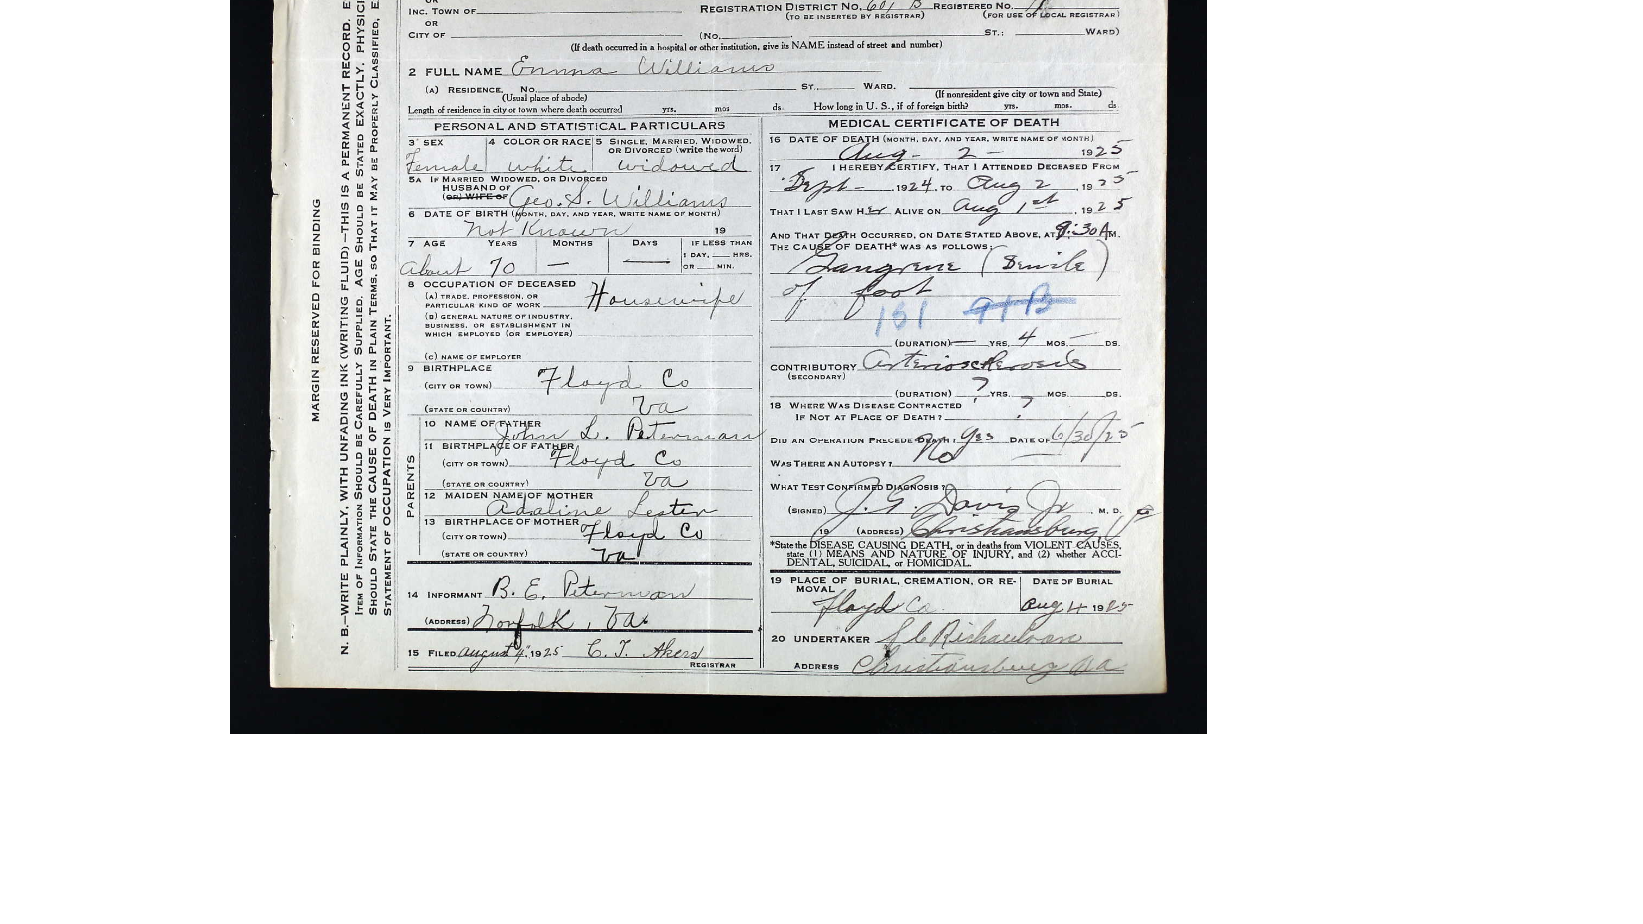 OR
INC. TOWN OF
REGISTRATION DISTRICT NO. 601 B REGISTERED NO.
(TO BE INSERTED BY REGISTRAR) (FOR USE OF LOCAL REGISTRAR)
OR
CITY OF (No. ST.: WARD)
(If death occurred in a hospital or other institution, give its NAME instead of street and number)
2 FULL NAME Emma Williams
(A) RESIDENCE. No. ST. WARD.
(Usual place of abode) (If nonresident give city or town and State)
Length of residence in city or town where death occurred yrs. mos ds. How long in U. S., if of foreign birth? yrs. mos. ds
PERSONAL AND STATISTICAL PARTICULARS
3 SEX 4 COLOR OR RACE 5 SINGLE, MARRIED, WIDOWED, OR DIVORCED (write the word)
Female white widowed
5A IF MARRIED WIDOWED, OR DIVORCED
HUSBAND OF
(OR) WIFE OF Geo. S. Williams
6 DATE OF BIRTH (MONTH, DAY, AND YEAR, WRITE NAME OF MONTH)
Not Known 19
7 AGE YEARS MONTHS DAYS IF LESS THAN
1 DAY, HRS.
OR MIN.
About 70 —
8 OCCUPATION OF DECEASED
(A) TRADE, PROFESSION, OR
PARTICULAR KIND OF WORK Housewife
(B) GENERAL NATURE OF INDUSTRY,
BUSINESS, OR ESTABLISHMENT IN
WHICH EMPLOYED (OR EMPLOYER)
(C) NAME OF EMPLOYER
9 BIRTHPLACE
(CITY OR TOWN) Floyd Co
(STATE OR COUNTRY) Va
PARENTS
10 NAME OF FATHER John L. Peterman
11 BIRTHPLACE OF FATHER
(CITY OR TOWN) Floyd Co
(STATE OR COUNTRY) Va
12 MAIDEN NAME OF MOTHER
Adaline Lester
13 BIRTHPLACE OF MOTHER
(CITY OR TOWN) Floyd Co
(STATE OR COUNTRY) Va
14 INFORMANT B. E. Peterman
(ADDRESS) Norfolk, Va.
15 FILED August 4, 1925 C. T. Akers
REGISTRAR
MEDICAL CERTIFICATE OF DEATH
16 DATE OF DEATH (MONTH, DAY, AND YEAR, WRITE NAME OF MONTH)
Aug - 2 - 1925
17 I HEREBY CERTIFY, THAT I ATTENDED DECEASED FROM
Sept - 1924, TO Aug 2, 1925
THAT I LAST SAW HER ALIVE ON Aug 1st, 1925
AND THAT DEATH OCCURRED, ON DATE STATED ABOVE, AT 9:30 A M.
THE CAUSE OF DEATH* WAS AS FOLLOWS:
Gangrene (Senile)
of foot
151 91B
(DURATION) — YRS. 4 MOS. — DS.
CONTRIBUTORY Arteriosclerosis
(SECONDARY)
(DURATION) ? YRS. MOS. DS.
18 WHERE WAS DISEASE CONTRACTED
IF NOT AT PLACE OF DEATH? ?
DID AN OPERATION PRECEDE DEATH? Yes DATE OF 6/30/25
WAS THERE AN AUTOPSY? No
WHAT TEST CONFIRMED DIAGNOSIS?
(SIGNED) J. G. Davis Jr, M. D.
19 (ADDRESS) Christiansburg
*State the DISEASE CAUSING DEATH, or in deaths from VIOLENT CAUSES,
state (1) MEANS AND NATURE OF INJURY, and (2) whether ACCI-
DENTAL, SUICIDAL, or HOMICIDAL.
19 PLACE OF BURIAL, CREMATION, OR RE- DATE OF BURIAL
MOVAL
Floyd Co. Aug 4 1925
20 UNDERTAKER Richardson
ADDRESS Christiansburg Va
MARGIN RESERVED FOR BINDING
N. B.—WRITE PLAINLY, WITH UNFADING INK (WRITING FLUID)—THIS IS A PERMANENT RECORD. E
ITEM OF INFORMATION SHOULD BE CAREFULLY SUPPLIED. AGE SHOULD BE STATED EXACTLY. PHYSICI
SHOULD STATE THE CAUSE OF DEATH IN PLAIN TERMS, SO THAT IT MAY BE PROPERLY CLASSIFIED, E
STATEMENT OF OCCUPATION IS VERY IMPORTANT.